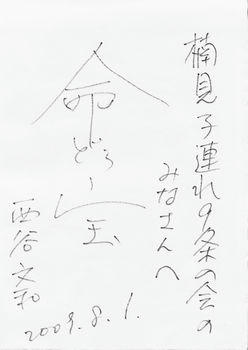 楠見子連れ9条の会の
みなさんへ
命どぅ宝
西谷文和
2009.8.1.